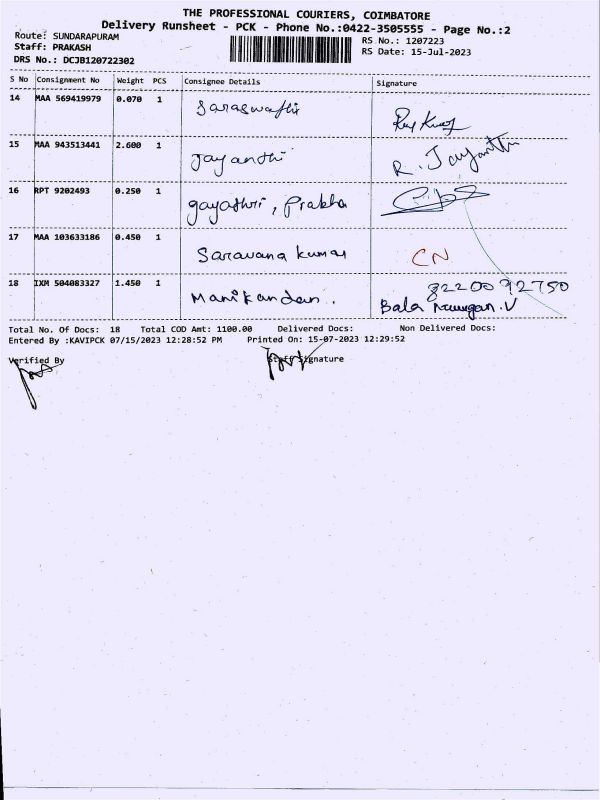 THE PROFESSIONAL COURIERS, COIMBATORE
Delivery Runsheet - PCK - Phone No.:0422-3505555 - Page No.:2
Route: SUNDARAPURAM RS No.: 1207223
Staff: PRAKASH RS Date: 15-Jul-2023
DRS No.: DCJB120722302
S No Consignment No Weight PCS Consignee Details Signature
14 MAA 569419979 0.070 1 Saraswathi
15 MAA 943513441 2.600 1 Jayanthi R. Jayanthi
16 RPT 9202493 0.250 1 gayathri, Prabha
17 MAA 103633186 0.450 1 Saravana kumar CN
18 IXM 504083327 1.450 1 Manikandan. 8220092750
Bala Murugan.V
Total No. Of Docs: 18 Total COD Amt: 1100.00 Delivered Docs: Non Delivered Docs:
Entered By :KAVIPCK 07/15/2023 12:28:52 PM Printed On: 15-07-2023 12:29:52
Verified By Staff Signature